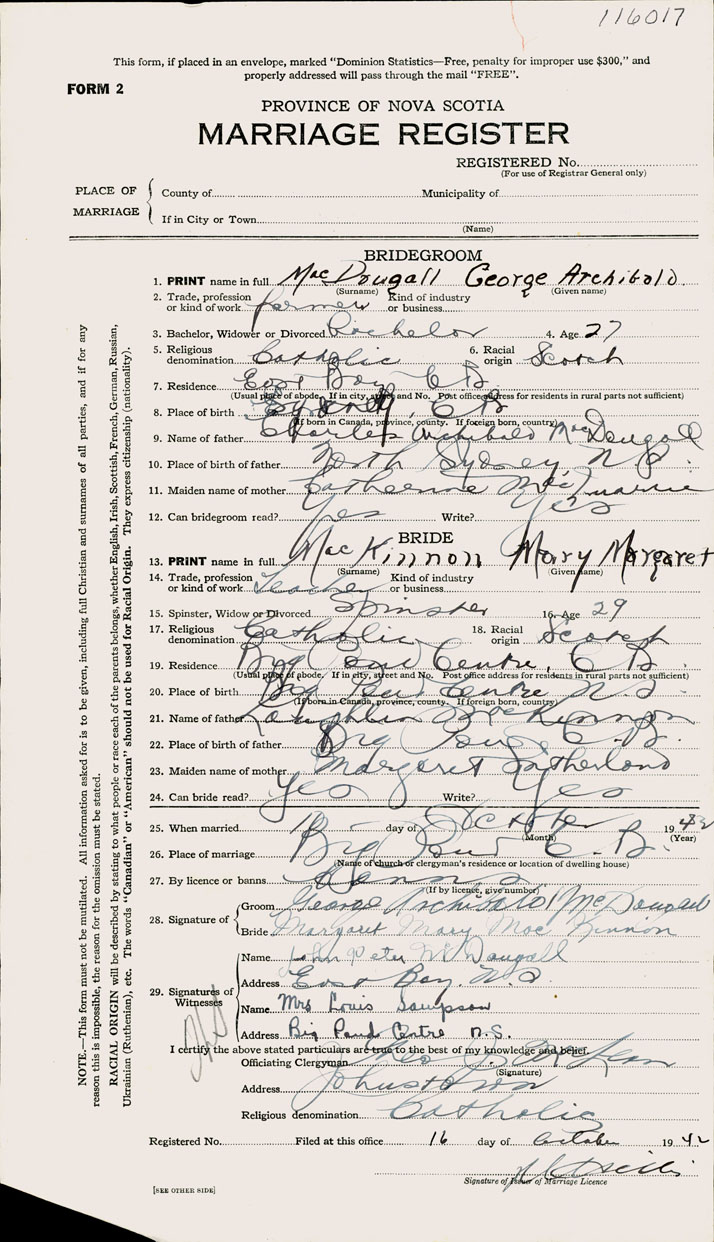 116017
This form, if placed in an envelope, marked "Dominion Statistics—Free, penalty for improper use $300," and
properly addressed will pass through the mail "FREE".
FORM 2
PROVINCE OF NOVA SCOTIA
MARRIAGE REGISTER
REGISTERED No.
(For use of Registrar General only)
PLACE OF MARRIAGE
County of Municipality of
If in City or Town
(Name)
BRIDEGROOM
1. PRINT name in full MacDougall George Archibald
(Surname) (Given name)
2. Trade, profession or kind of work farmer Kind of industry or business
3. Bachelor, Widower or Divorced Bachelor 4. Age 27
5. Religious denomination Catholic 6. Racial origin Scotch
7. Residence East Bay C B
(Usual place of abode. If in city, street and No. Post office address for residents in rural parts not sufficient)
8. Place of birth Sydney, C B
(If born in Canada, province, county. If foreign born, country)
9. Name of father Charles Archibald MacDougall
10. Place of father North Sydney N S.
11. Maiden name of mother Catherine
12. Can bridegroom read? Yes Write? Yes
BRIDE
13. PRINT name in full MacKinnon Mary Margaret
(Surname) (Given name)
14. Trade, profession or kind of work Teacher Kind of industry or business
15. Spinster, Widow or Divorced Spinster 16. Age 29
17. Religious denomination Catholic 18. Racial origin Scotch
19. Residence Big Pond Centre, C B
(Usual place of abode. If in city, street and No. Post office address for residents in rural parts not sufficient)
20. Place of birth Big Pond Centre N S
(If born in Canada, province, county. If foreign born, country)
21. Name of father Laughlin MacKinnon
22. Place of birth of father Big Pond C. B.
23. Maiden name of mother Margaret Sutherland
24. Can bride read? Yes Write? Yes
25. When married day of October 1942
(Month) (Year)
26. Place of marriage Big Pond C. B.
(Name of church or clergyman's residence or location of dwelling house)
27. By licence or banns Banns
(If by licence, give number)
28. Signature of
Groom George Archibald McDougall
Bride Margaret Mary MacKinnon
29. Signatures of Witnesses
Name John Peter McDougall
Address East Bay. N.S.
Name Mrs Louis Sampson
Address Big Pond Centre N.S.
I certify the above stated particulars are true to the best of my knowledge and belief.
Officiating Clergyman
(Signature)
Address Johnstown
Religious denomination Catholic
Registered No. Filed at this office 16 day of October 1942
Signature of Issuer of Marriage Licence
[SEE OTHER SIDE]
NOTE.—This form must not be mutilated. All information asked for is to be given, including full Christian and surnames of all parties, and if for any
reason this is impossible, the reason for the omission must be stated.
RACIAL ORIGIN will be described by stating to what people or race each of the parents belongs, whether English, Irish, Scottish, French, German, Russian,
Ukrainian (Ruthenian), etc. The words "Canadian" or "American" should not be used for Racial Origin. They express citizenship (nationality).